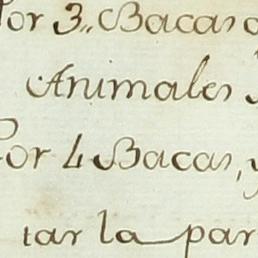 Por 3,, Bacas
Animales
Por 4 Bacas, y
tar la par